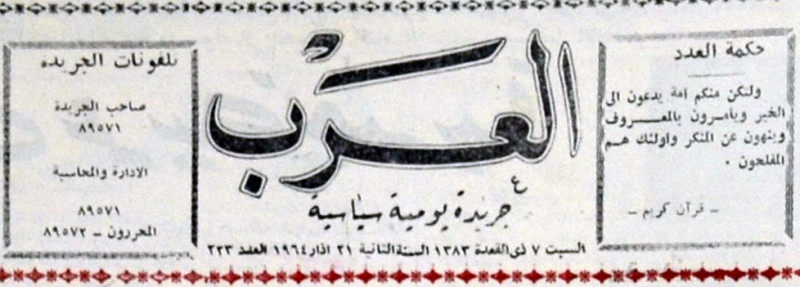 حكمة العدد
ولتكن منكم امة يدعون الى
الخير ويأمرون بالمعروف
وينهون عن المنكر واولئك هم
المفلحون .
ـ قرآن كريم ـ
العرب
جريدة يومية سياسية
السبت ٧ ذي القعدة ١٣٨٣ السنة الثانية ٢١ اذار ١٩٦٤ العدد ٢٢٣
تلفونات الجريدة
صاحب الجريدة
٨٩٥٧١
الادارة والمحاسبة
٨٩٥٧١
المحررون ـ ٨٩٥٧٢